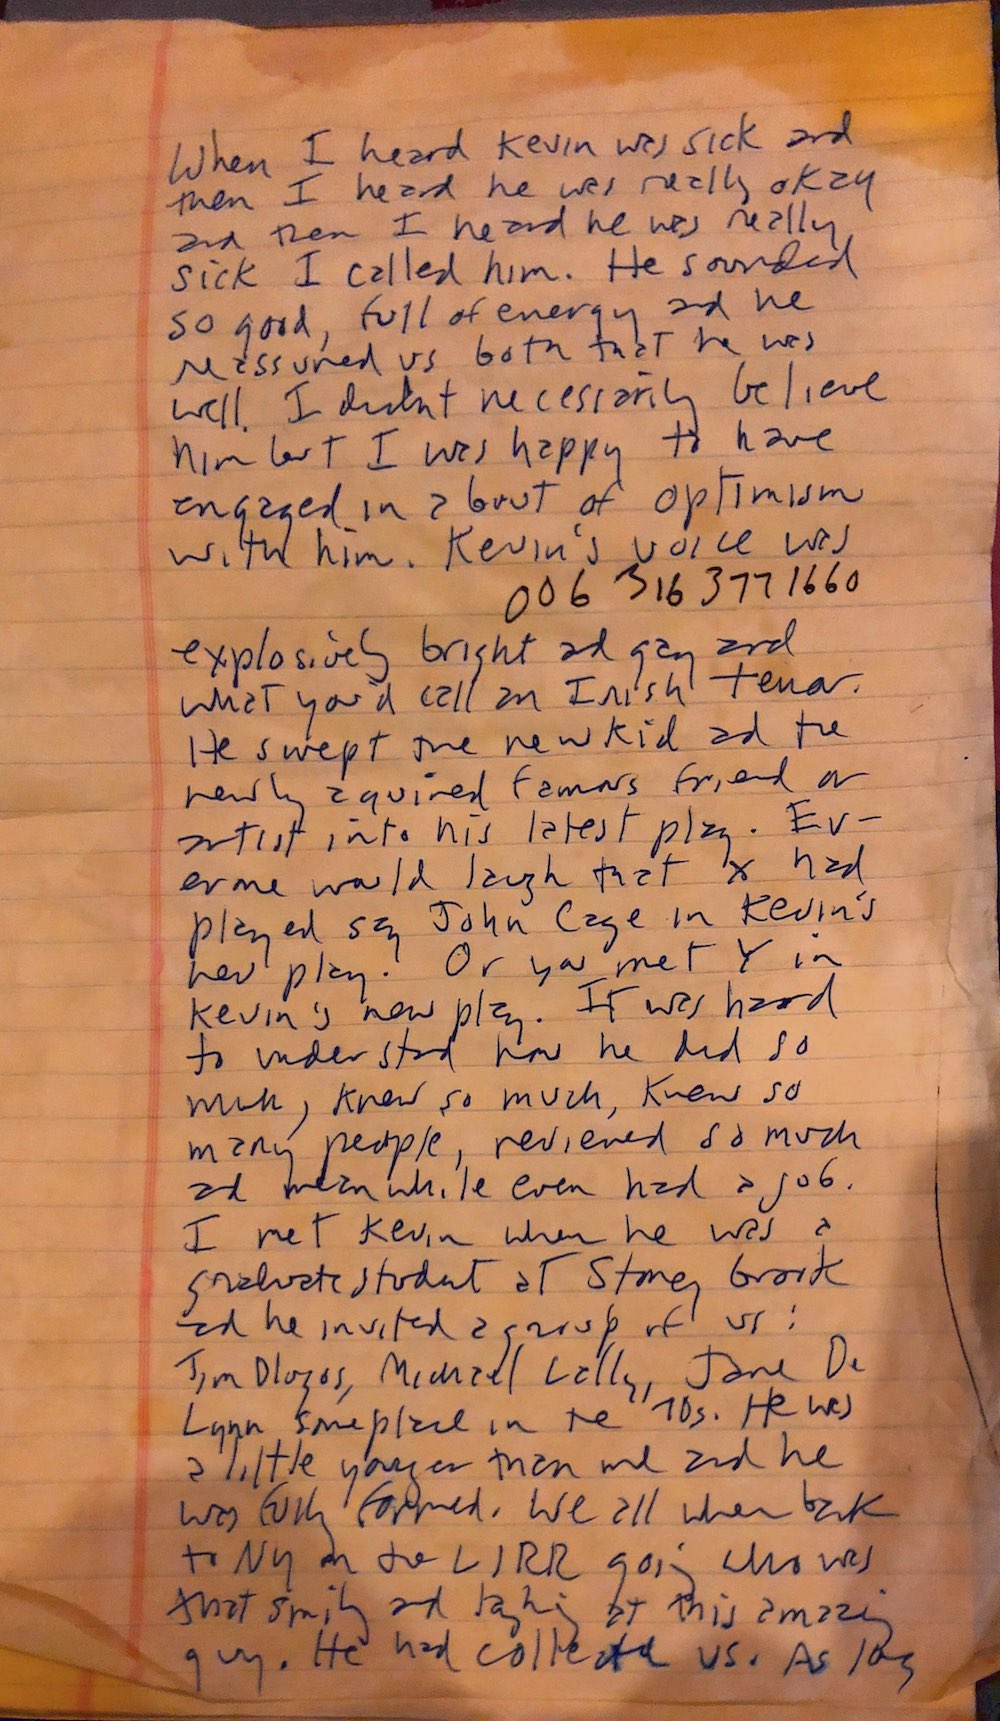 When I heard Kevin was sick and
then I heard he was really okay
and then I heard he was really
sick I called him. He sounded
so good, full of energy and he
reassured us both that he was
well. I didn't necessarily believe
him but I was happy to have
engaged in a bout of optimism
with him. Kevin's voice was
006 316 3771660
explosively bright ad gay and
what you'd call an Irish tenor.
He swept the new kid ad the
newly aquired famous friend or
artist into his latest play. Ev-
eryone would laugh that X had
played say John Cage in Kevin's
new play. Or you met Y in
Kevin's new play. It was hard
to understand how he did so
much, knew so much, knew so
many people, reviewed so much
ad meanwhile even had a job.
I met Kevin when he was a
graduate student at Stoney Brook
ad he invited a group of us:
Tim Dlugos, Michael Lally, Jane De
Lynn someplace in the '70s. He was
a little younger than me and he
was fully formed. We all when back
to NY on the LIRR going who was
that smiling and laughing at this amazing
guy. He had collected us. As long